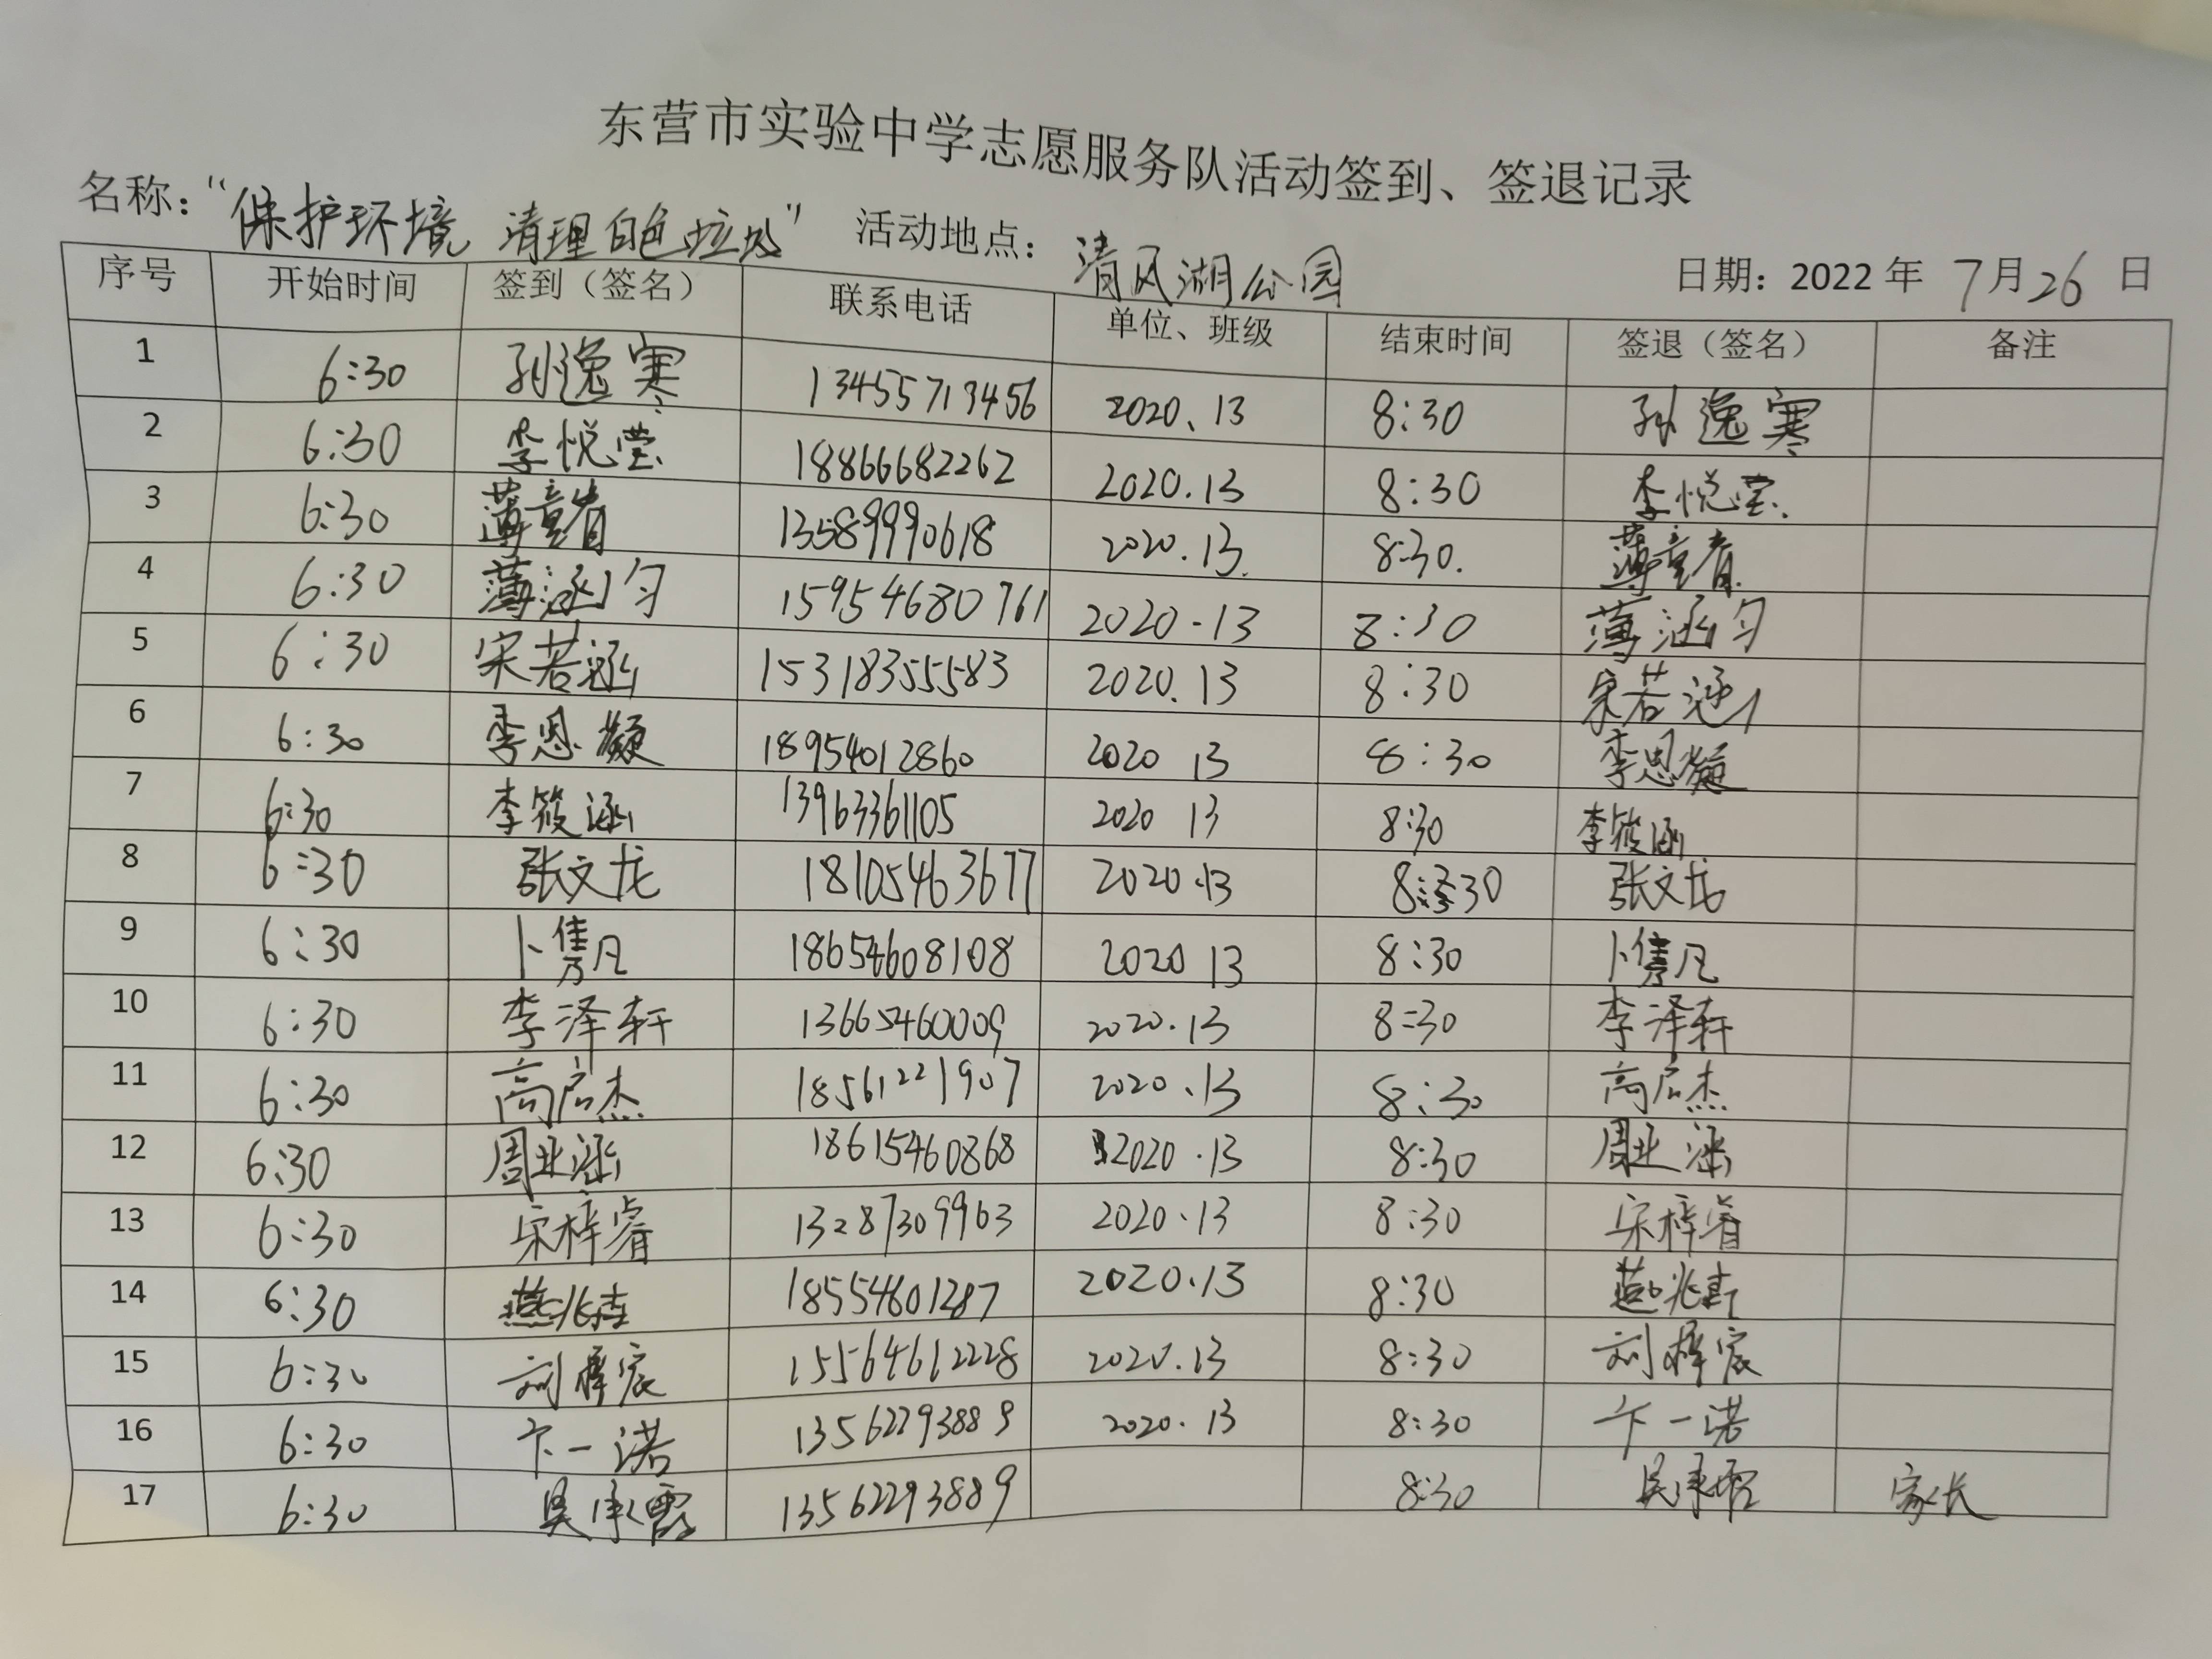 东营市实验中学志愿服务队活动签到、签退记录
名称：“保护环境 清理白色垃圾” 活动地点：清风湖公园 日期：2022年7月26日
序号 开始时间 签到（签名） 联系电话 单位、班级 结束时间 签退（签名） 备注
1 6:30 孙逸寒 13455713456 2020.13 8:30 孙逸寒
2 6:30 李悦莹 18866682262 2020.13 8:30 李悦莹
3 6:30 薄童肴 13589990618 2020.13. 8:30. 薄童肴
4 6:30 薄涵匀 15954680761 2020.13 8:30 薄涵匀
5 6:30 宋若涵 15318355583 2020.13 8:30 宋若涵
6 6:30 李思凝 18954012860 2020 13 8:30 李思凝
7 6:30 李筱涵 13963361105 2020 13 8:30 李筱涵
8 6:30 张文龙 18105463677 2020.13 8:30 张文龙
9 6:30 卜隽凡 18654608108 2020 13 8:30 卜隽凡
10 6:30 李泽轩 13665460009 2020.13 8:30 李泽轩
11 6:30 高启杰 18561221907 2020.13 8:30 高启杰
12 6:30 周业涵 18615460868 2020.13 8:30 周业涵
13 6:30 宋梓睿 13287309963 2020.13 8:30 宋梓睿
14 6:30 燕兆 18554601287 2020.13 8:30 燕兆
15 6:30 刘梓宸 15564612228 2020.13 8:30 刘梓宸
16 6:30 卞一诺 13562293889 2020.13 8:30 卞一诺
17 6:30 吴承霞 13562293889 8:30 吴承霞 家长